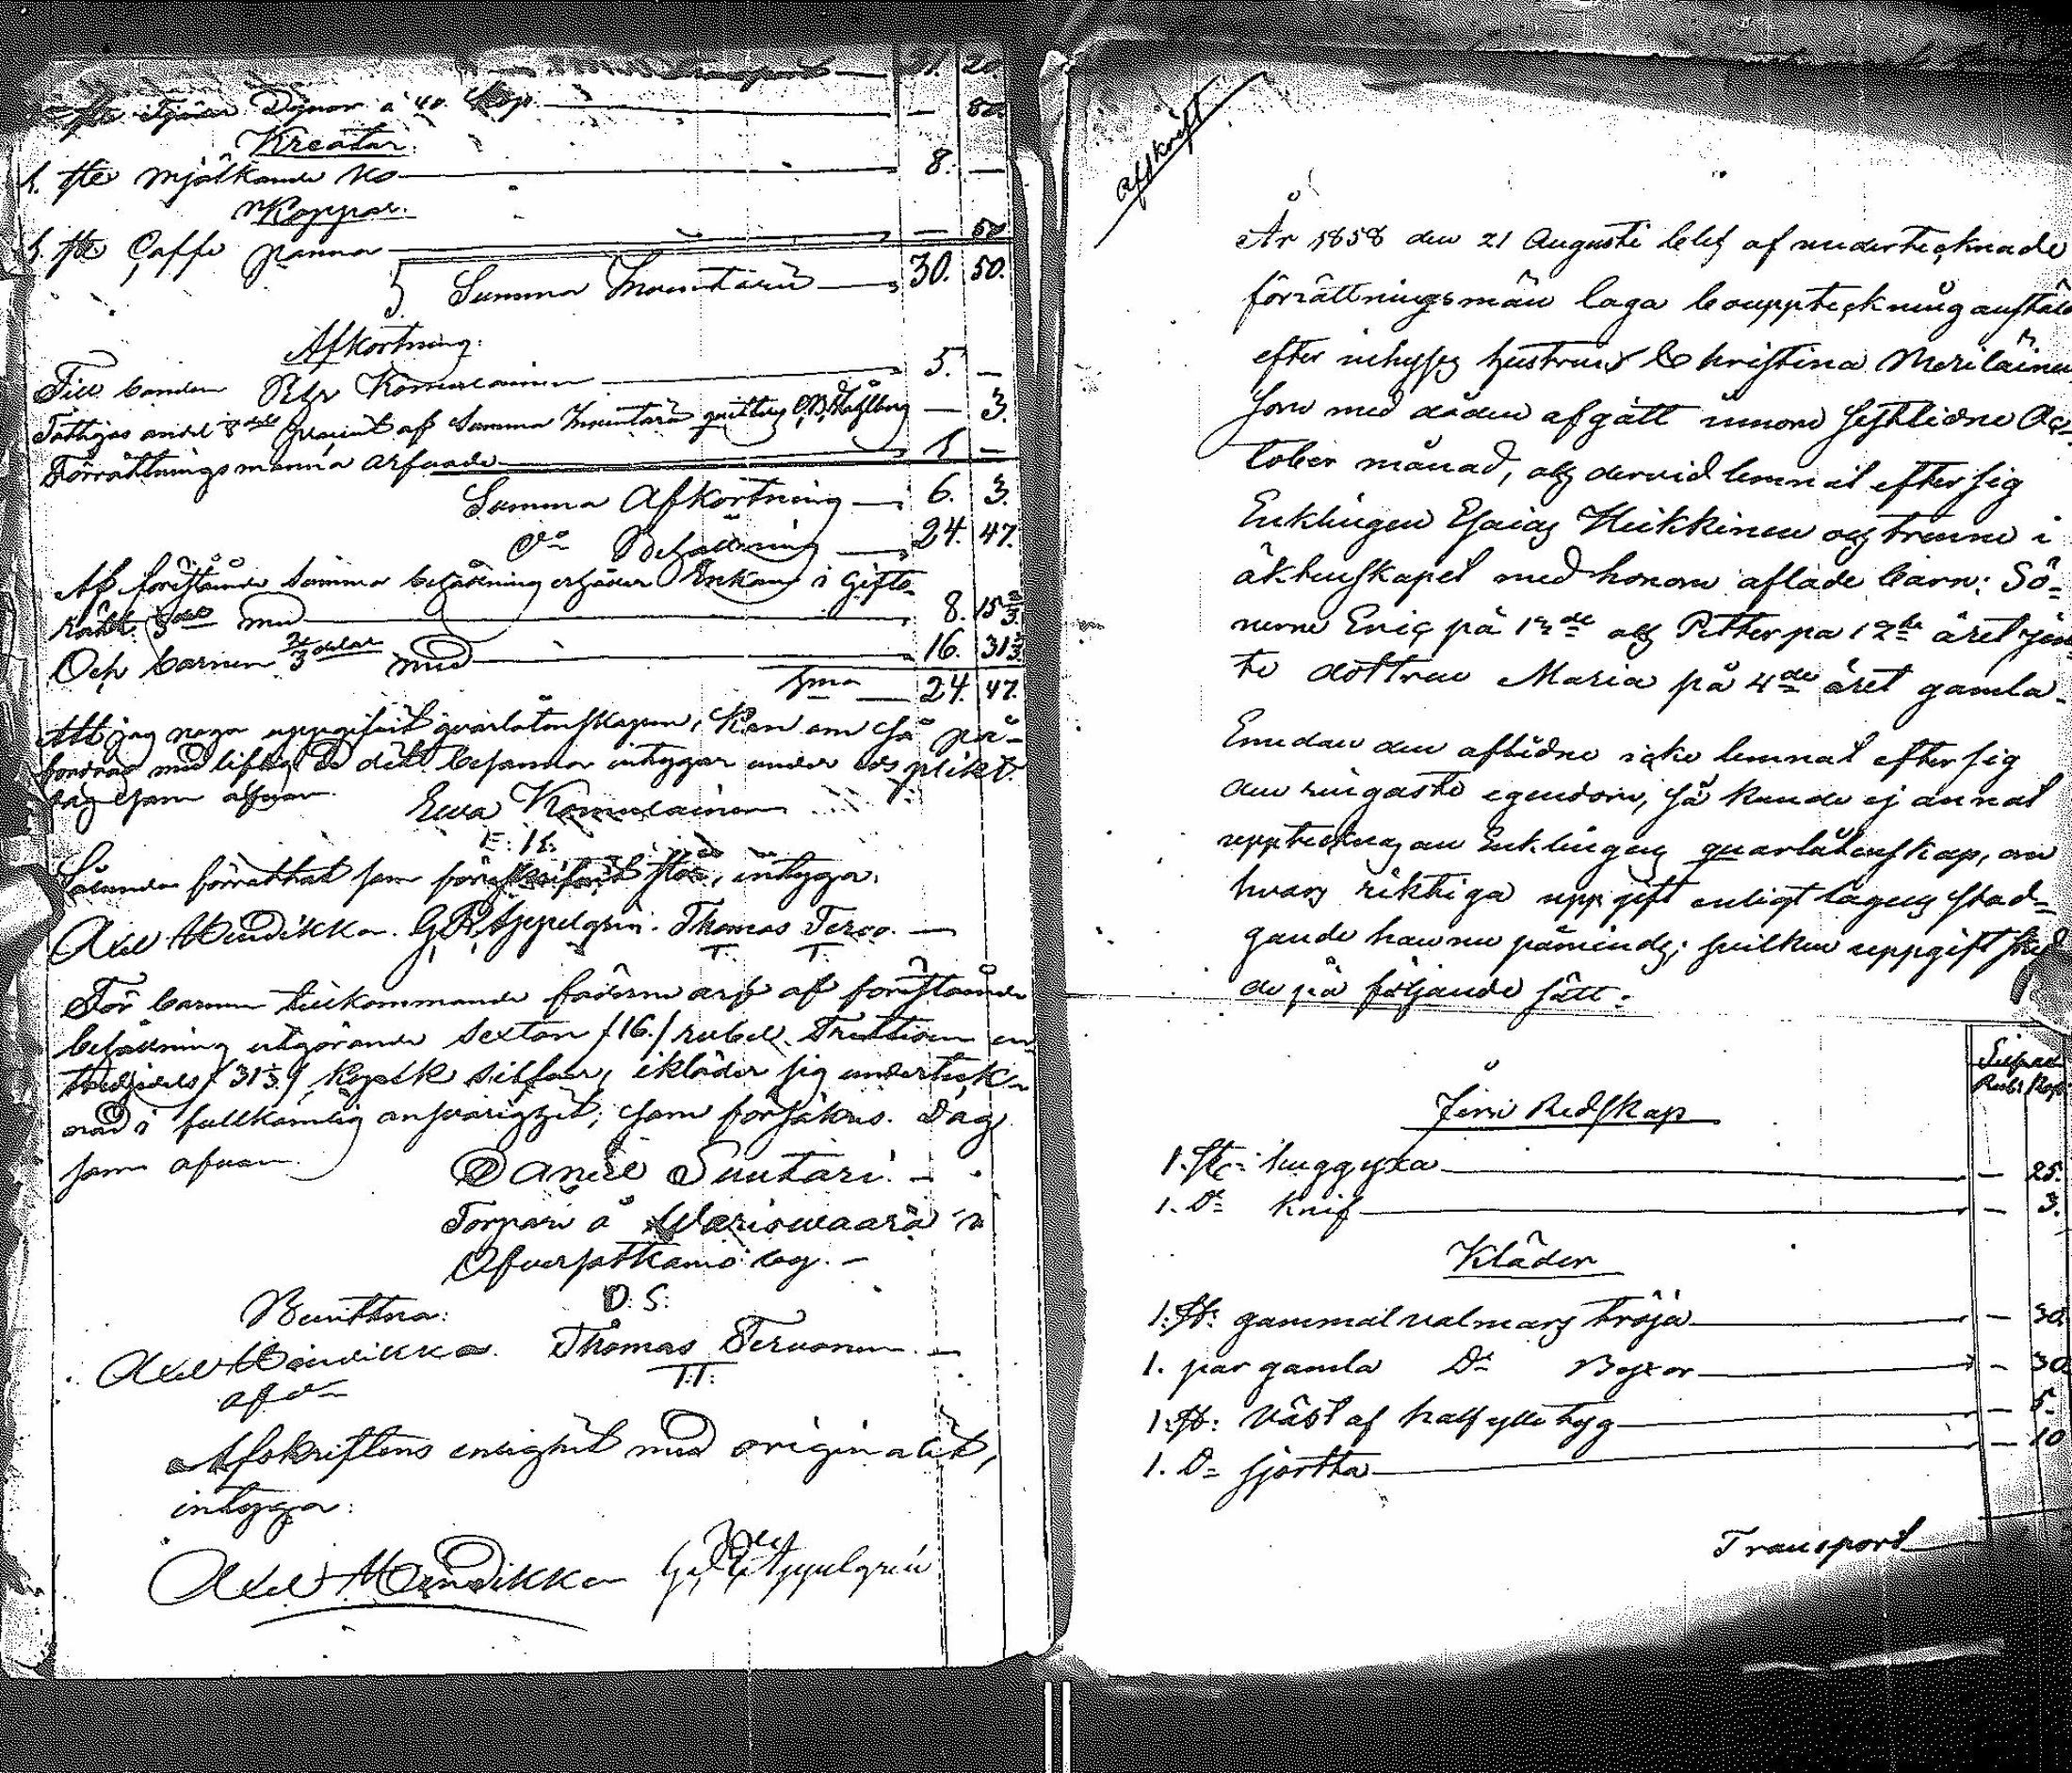 Transport — 21. 20.
Dynor a 40. Kop. — — 80.
Kreatur.
1. ste mjölkande ko — 8. —
Koppar.
1. ste Caffe panna — — 50
Summa Inventarii — 30. 50.
Afkortning:
Till bonden Petr Komulainen — 5. —
Fattigas andel 8de procent af Summa Inventarii — 3.
Förrättningsmanna arfvode — 1 —
Summa Afkortning — 6. 3.
Behållning — 24. 47.
Af förestående Summa behållning erhåller Enkan i Gifto-
rätt med — 8. 15 2/3
Och barnen 2/3 delar med — 16. 31 1/3
Sma — 24. 47.
Att jag noga uppgifvit qvarlåtenskapen, kan om så på-
fordras med liflig Ed det besanna intygar under Eds plikt.
Dag som ofvan.
Ewa Komulainen
E: K:
Sålunda förrättat som föreskrifvit står, intyga.
Axel Mendikka. G. R. Appelgrén. Thomas Tervo. —
T. T.
För barnen tillkommande fäderne arf af förestående
behållning utgörande Sexton /16./ rubel Trettioen en
tredjedels /31 1/3/ kopek silfver, ikläder sig underteck-
nad i fullkomlig ansvarighet, som försäkras. Dag
som ofvan.
Daniel Suutari. —
Torpari å Wariswaara i
Öfversotkamo by. —
D. S.
Bevittna:
Axel Mendikka. Thomas Tervonen. —
T: T:
Afskriftens enlighet med originalet,
intyga:
Axel Mendikka G. R. Appelgrén
Afskrift
År 1858 den 21 Augusti blef af undertecknade
förrättningsmän laga bouppteckning anstäld
efter inhyses hustrun Christina Meriläinen
som med döden afgått innom sistlidne Oc-
tober månad, och dervid lemnat efter sig
Enklingen Esaias Heikkinen och trenne i
äktenskapet med honom aflade barn: Sö-
nerne Eric på och Petter på 12te året jem-
te dottren Maria på 4de året gamla.
Emedan den aflidne icke lemnat efter sig
den ringaste egendom, så kunde ej annat
upptecknas än Enklingens quarlåtenskap, om
hvars riktiga uppgift enligt lagens stad-
gande han nu påmindes; hvilken uppgift sked-
de på följande sätt:
Silfver
Rub: Kop
Jern Redskap
1. St: huggyxa — — 25.
1. Do knif — — 3.
Kläder
1. St: gammal valmars tröja — — 30
1. par gamla Do Boxor — — 30
1. St: Väst af half ylle tyg — — 5.
1. Do sjortta — — 10
Transport